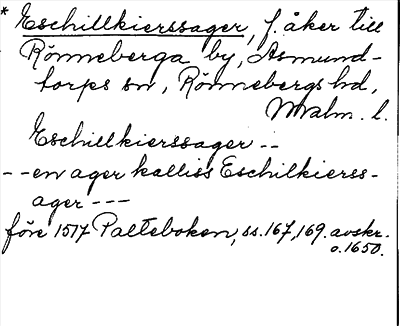 * Eschillkierssager, f. åker till
Rönneberga by, Asmund-
torps sn, Rönnebergs hd,
Malm. l.
Eschillkierssager --
--en ager kalliss Eschilkierss-
ager ---
före 1517 Palteboken, ss. 167, 169. avskr.
o. 1650.